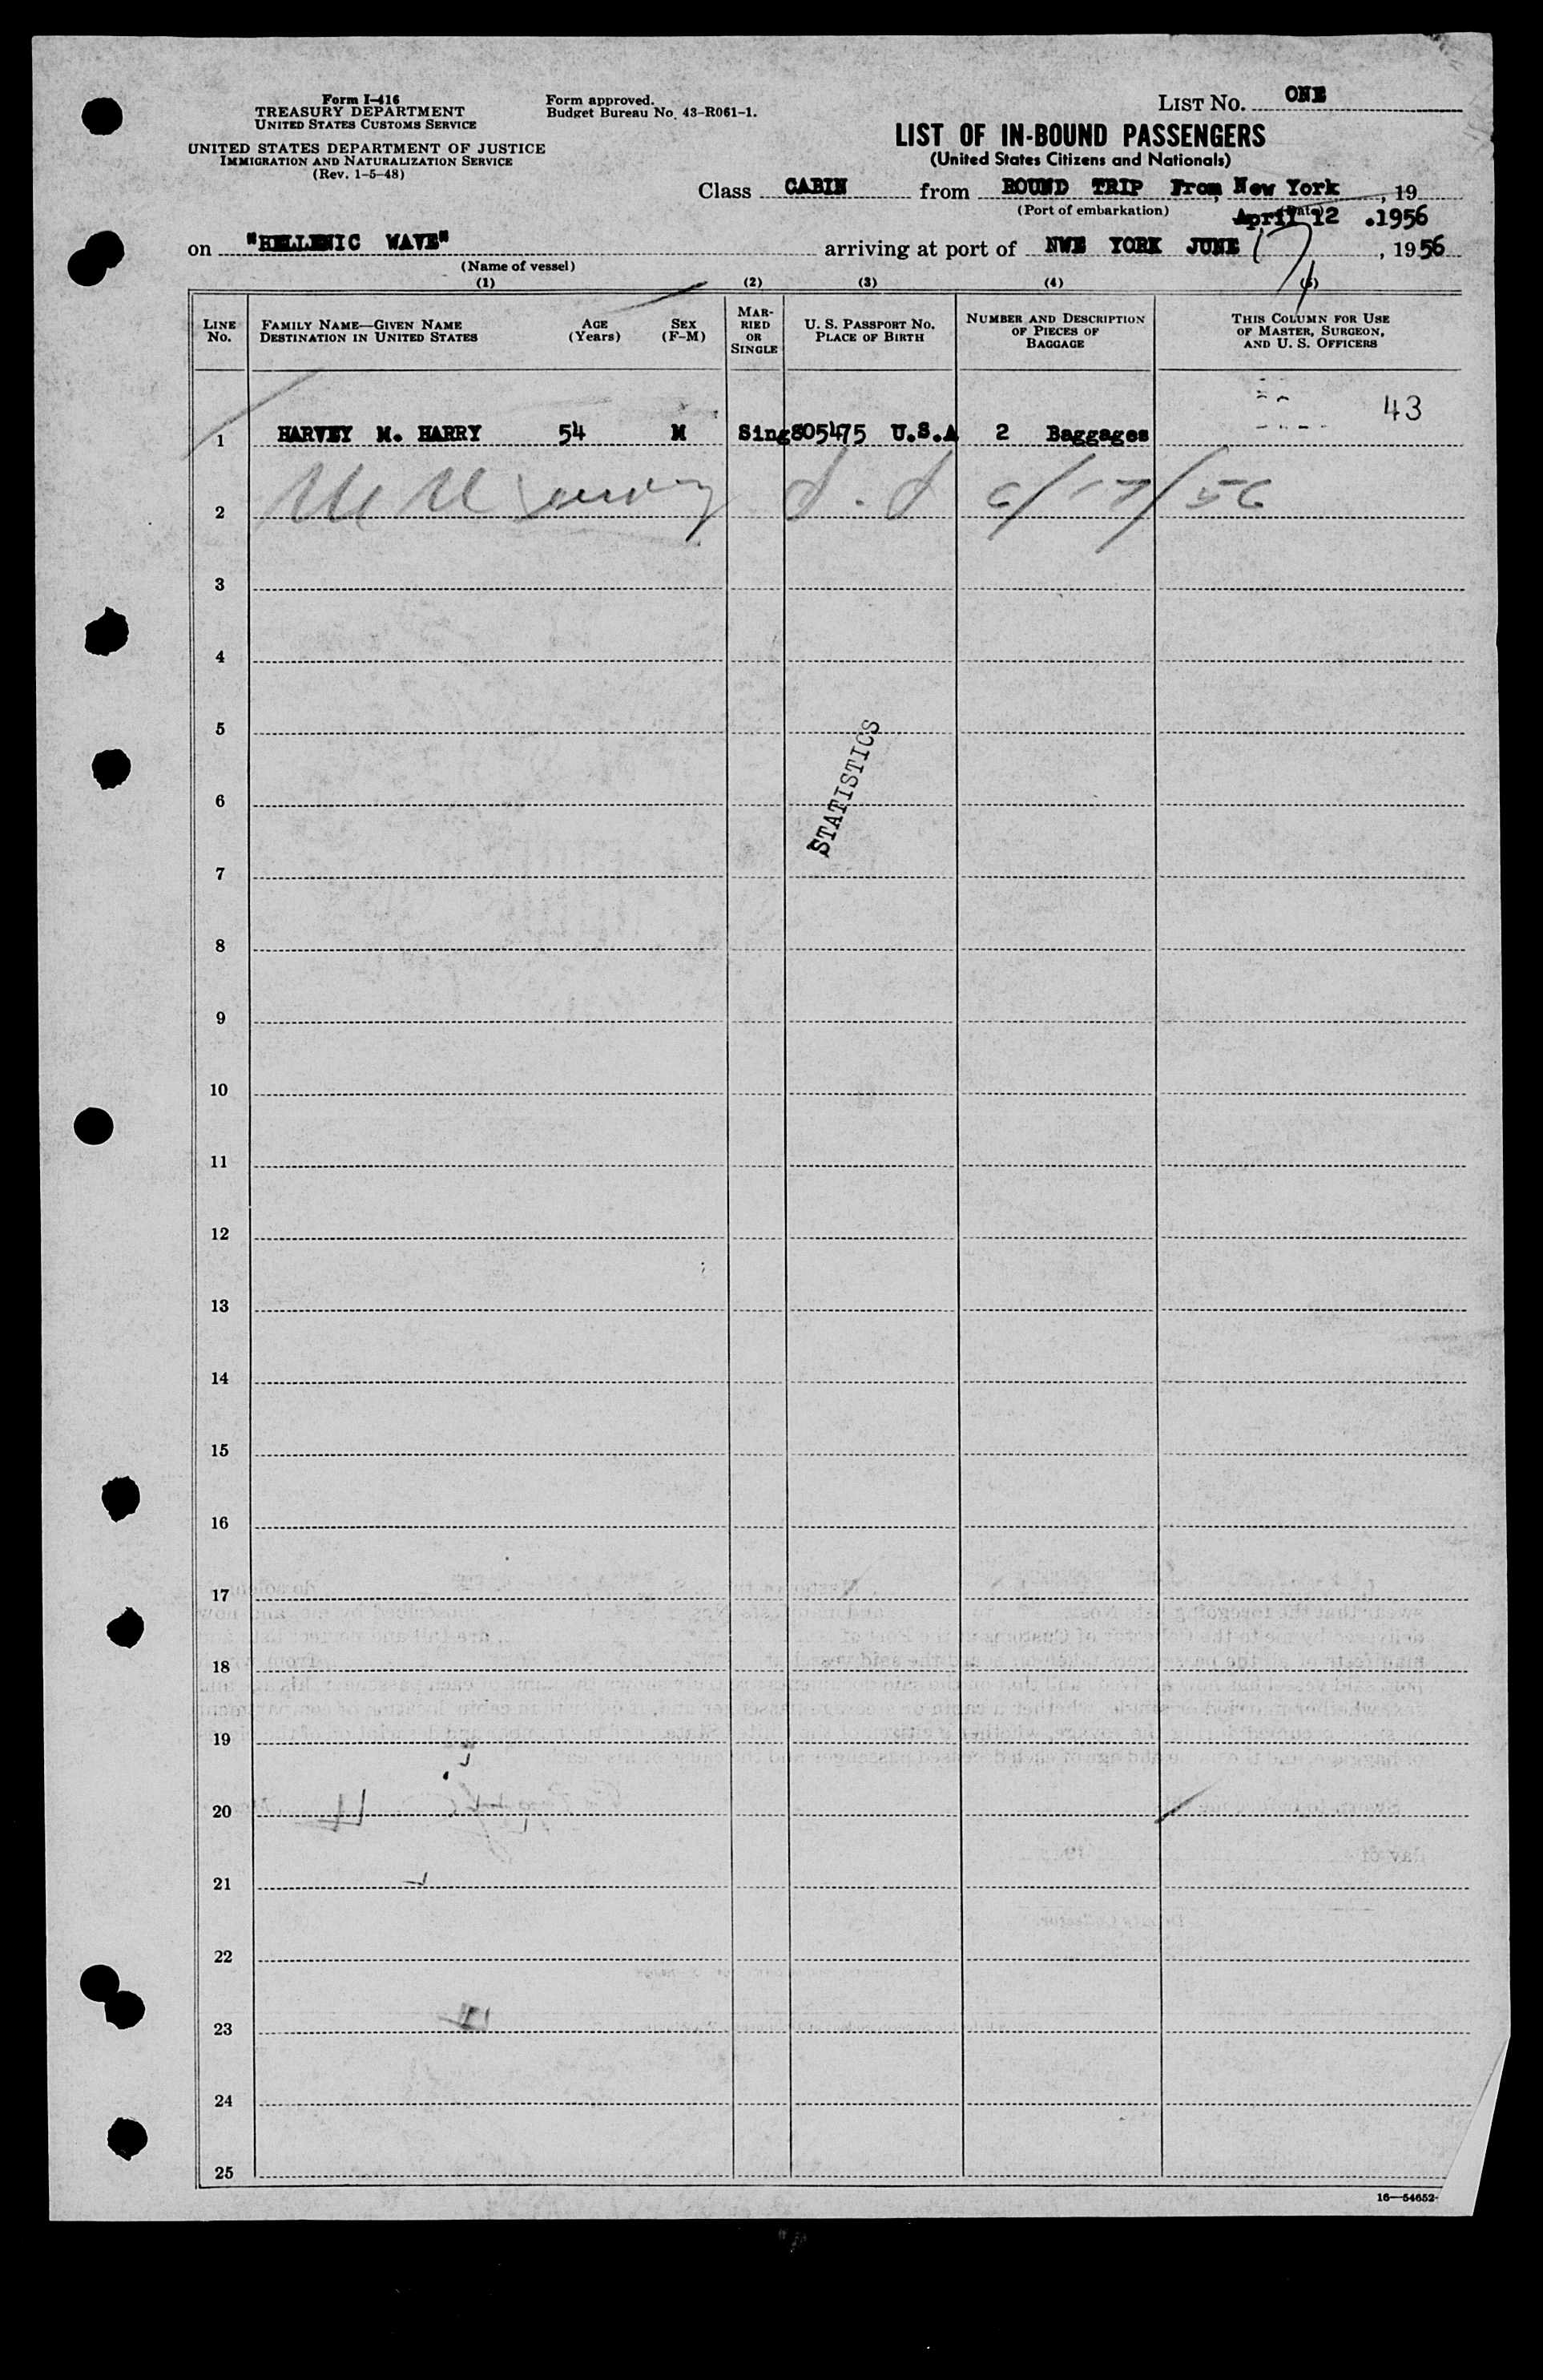 Form I-416
TREASURY DEPARTMENT
UNITED STATES CUSTOMS SERVICE
UNITED STATES DEPARTMENT OF JUSTICE
IMMIGRATION AND NATURALIZATION SERVICE
(Rev. 1-5-48)
Form approved.
Budget Bureau No. 43-R061-1.
LIST No. ONE
LIST OF IN-BOUND PASSENGERS
(United States Citizens and Nationals)
Class CABIN from ROUND TRIP From New York, 19
(Port of embarkation) (Date)
April 12 .1956
on "HELLENIC WAVE" arriving at port of NWE YORK JUNE 17, 1956
(Name of vessel)
(1) (2) (3) (4) (5)
LINE No. FAMILY NAME—GIVEN NAME DESTINATION IN UNITED STATES AGE (Years) SEX (F-M) MARRIED OR SINGLE U. S. PASSPORT No. PLACE OF BIRTH NUMBER AND DESCRIPTION OF PIECES OF BAGGAGE THIS COLUMN FOR USE OF MASTER, SURGEON, AND U. S. OFFICERS
43
1 HARVEY M. HARRY 54 M Sing 805475 U.S.A 2 Baggages
2 6/17/56
3
4
5
STATISTICS
6
7
8
9
10
11
12
13
14
15
16
17
18
19
20
21
22
23
24
25
16—54652-